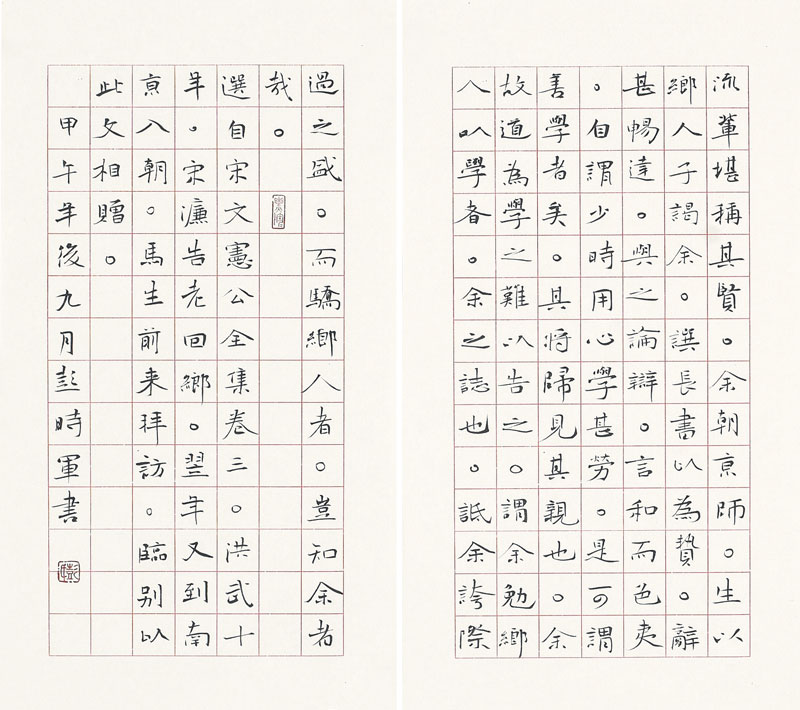 流輩堪稱其賢。余朝京師。生以
鄉人子謁余。譔長書以為贄。辭
甚暢達。與之論辯。言和而色夷
。自謂少時用心學甚勞。是可謂
善學者矣。其將歸見其親也。余
故道為學之難以告之。謂余勉鄉
人以學者。余之誌也。詆余誇際
過之盛。而驕鄉人者。豈知余者
哉。
選自宋文憲公全集卷三。洪武十
年。宋濂告老回鄉。翌年又到南
京入朝。馬生前来拜訪。臨别以
此文相贈。
甲午年後九月彭時軍書